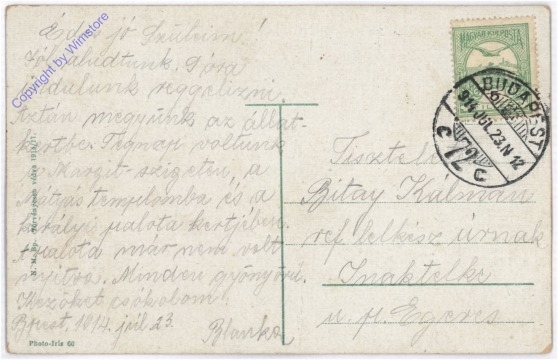 Édes jó Szüleim!
Jól aludtunk.
indulunk reggelizni
Aztán megyünk az állat-
kertbe. Tegnap voltunk
a Margit-szigeten, a
Mátyás templomba és a
királyi palota kertjében.
A palota már nem volt
nyitva. Minden gyönyörű.
Kezöket csókolom
Bpest, 1914. júl. 23.
Blanka
Photo-Iris 60
Copyright by Wimstore
MAGYAR KIR. POSTA
BUDAPEST
914 JUL. 23. N 12
C 72 C
Bitay Kálmán
ref. lelkész úrnak
Inaktelke
u. p. Egeres